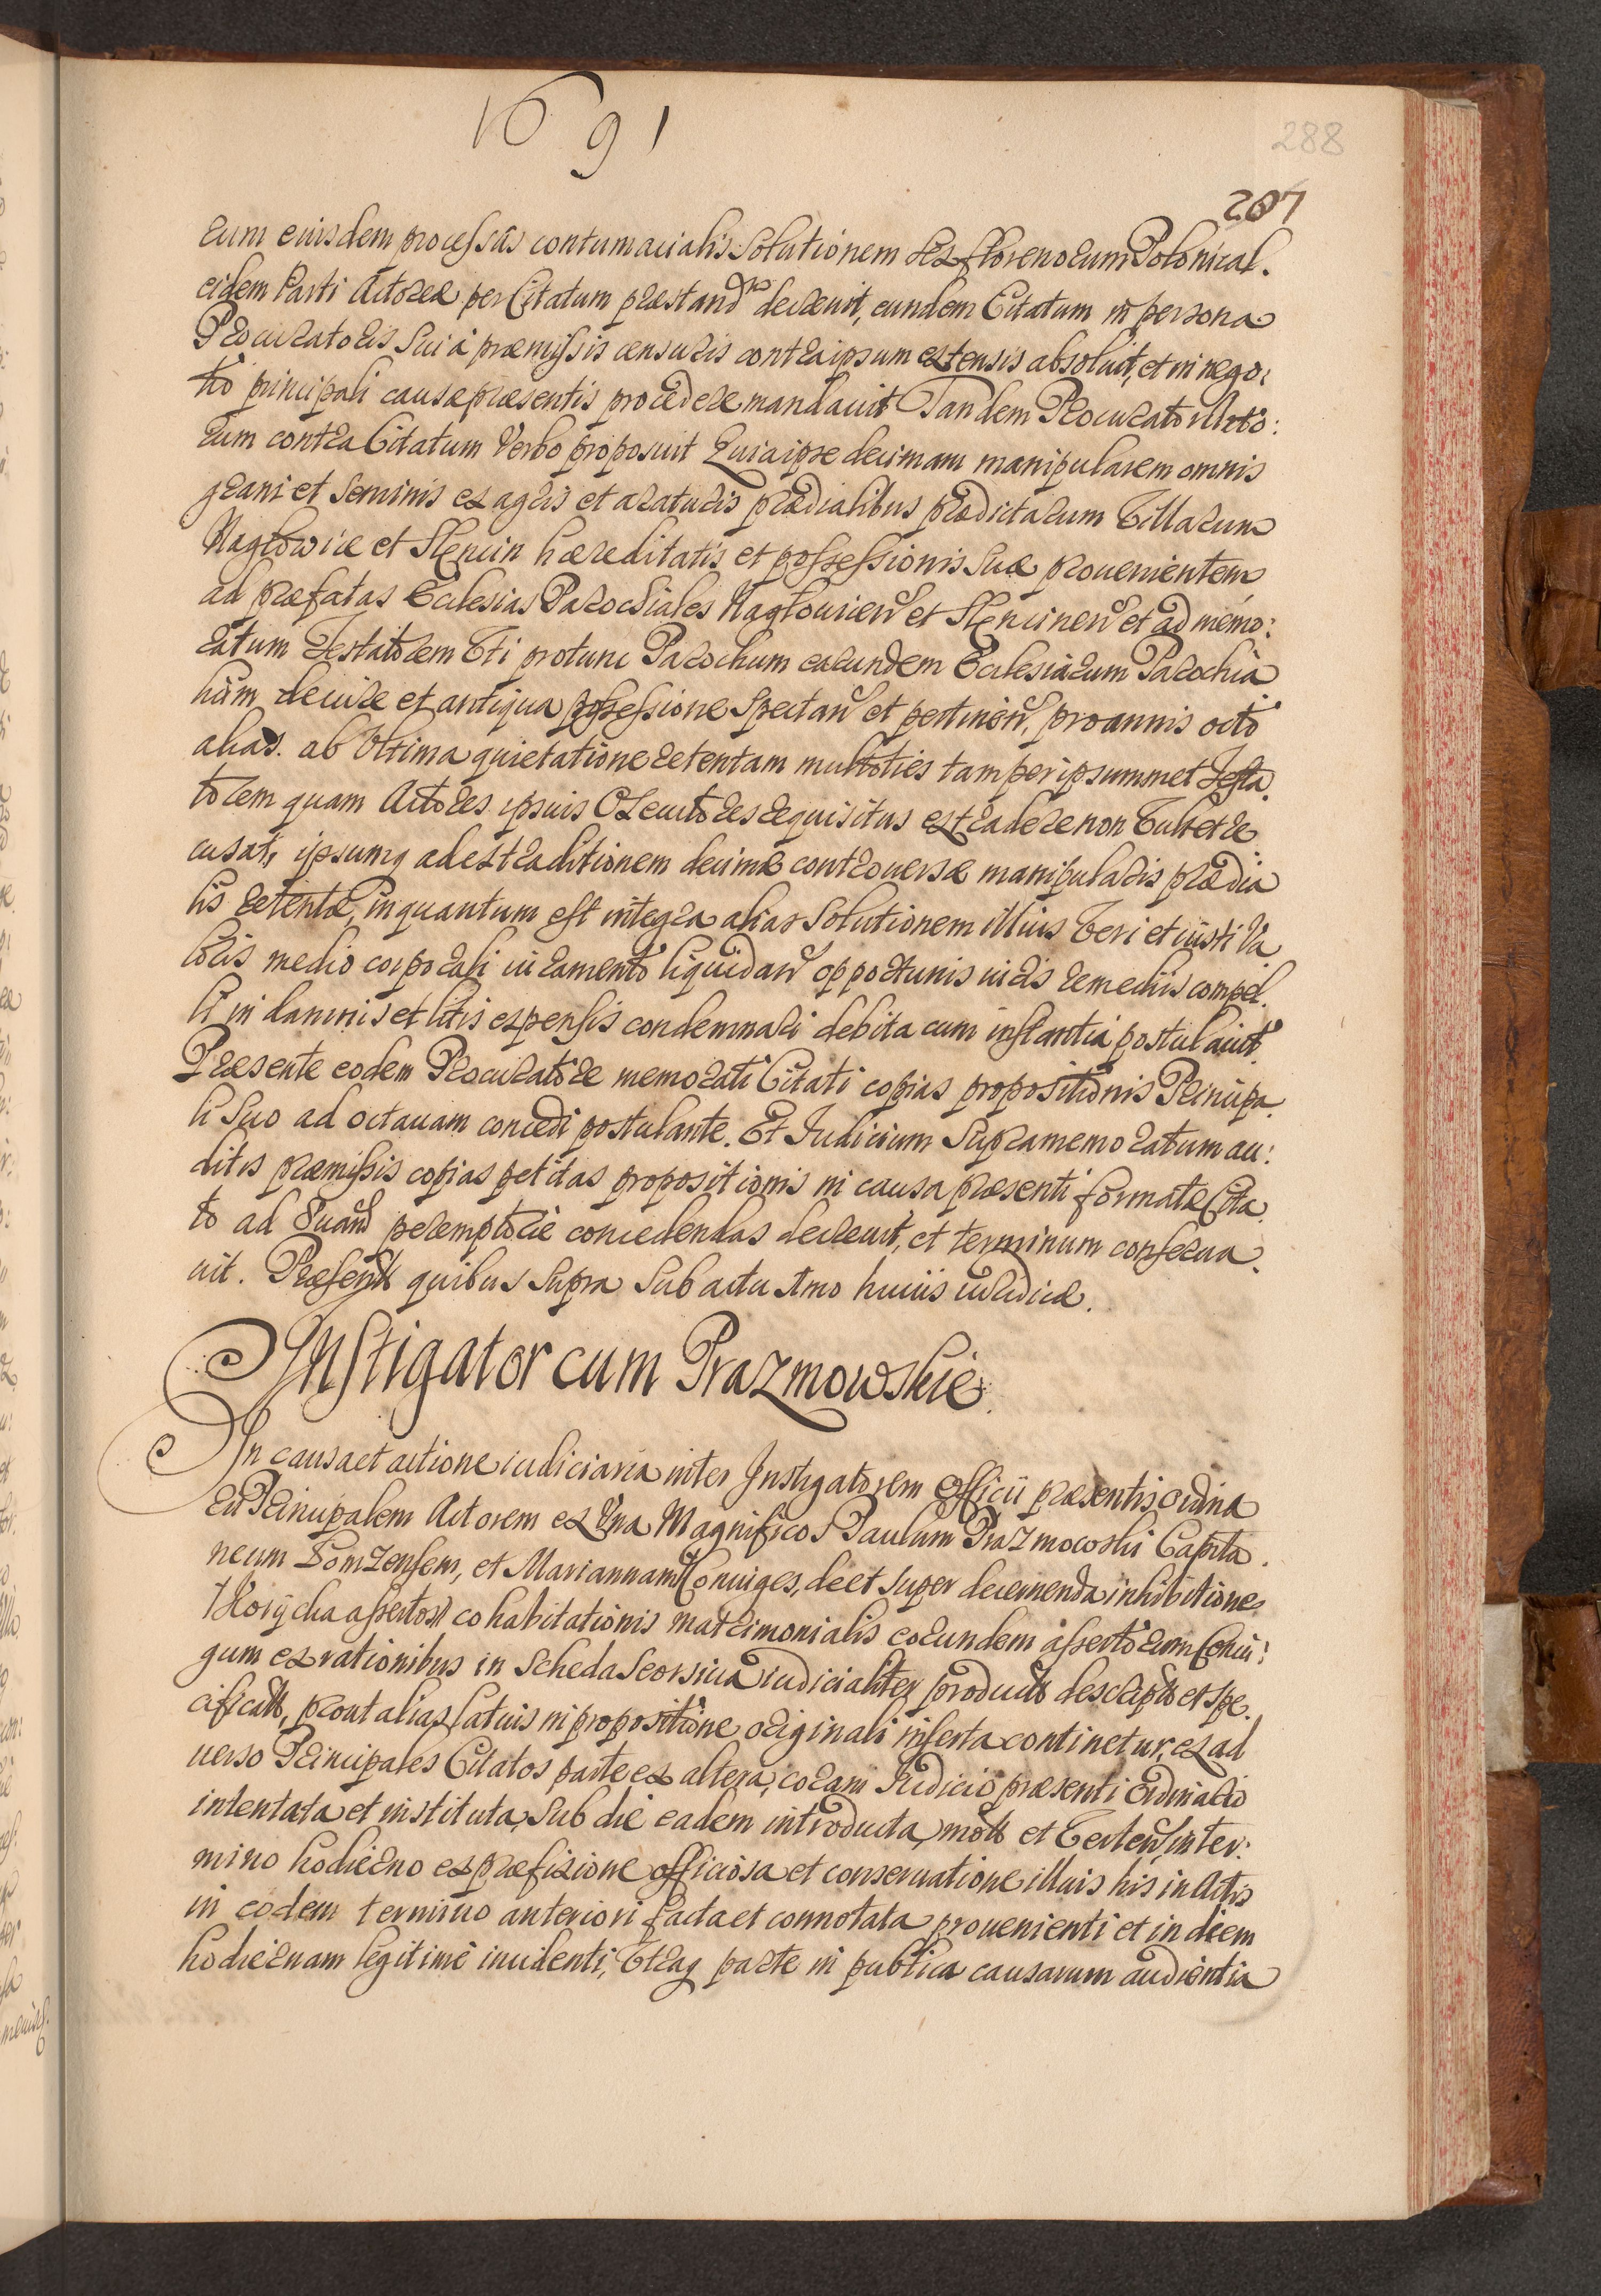 1691
288
207
rum eiusdem processûs contumacialis Solutionem sex florenorum Polonical.
eidem Parti Actoreæ per Citatum præstand decreuit, eundem Citatum in persona
Procuratoris Sui à præmissis censuris contra ipsum extensis absoluit, et in nego:
tio principali causæ præsentis procedere mandauit Tandem Procurator Acto:
rum contra Citatum Verbo proposuit Quia ipse decimam manipularem omnis
grani et Seminis ex agris et araturis prædialibus prædictarum Villarum
Nagłowice et Slęncin hæreditatis et possessionis Suæ prouenientem
ad præfatas Ecclesias Parochiales Nagłouicen et Slęncinen et ad memo:
ratum Testatorem Vti protunc Parochum earundem Ecclesiarum Parochia
lium de iure et antiqua possessione Spectan et pertinen, pro annis octo
alias. ab Vltima quietatione retentam multoties tam per ipsummet Testa.
torem quam Actores ipsuis Executores requisitus extradere non Vult et re
cusat, ipsumq ad extraditionem decimæ controuersæ manipularis prædia
lis retentæ, inquantum est integra alias Solutionem illius Veri et iusti Va
loris medio corporali iuramento liquidan opportunis iuris remediis compel.
li in damnis et litis expensis condemnari debita cum instantia postulauit.
Præsente eodem Procuratore memorati Citati copias propositionis Principa.
li Suo ad octauam concedi postulante. Et Iudicium Supramemoratum au:
ditis præmissis copias petitas propositionis in causa præsenti formatæ Cita.
to ad 8uam peremptorie concedendas decreuit, et terminum conserua.
uit. Præsent quibus Supra Sub actu Imo huius iuridicæ.
Instigator cum Prazmowskie.
In causa et actione iudiciaria inter Instigatorem Officii præsentis ordina
rii Principalem Actorem ex Vna Magnificos Paulum Prazmowski Capita.
neum Łomzensem, et Mariannam Coniuges, de et super decernenda inhibitione
Horÿcha assertos cohabitationis matrimonialis eorundem assertorum Coniu:
gum ex rationibus in Scheda Seorsiua iudicialiter product descript et spe.
cificat, prout alias latius in propositione originali inserta continetur, ex ad
uerso Principales Citatos parte ex altera, coram Iudicio præsenti Ordinario
intentata et instituta, Sub die eadem introducta, mot et Verten, in ter:
mino hodierno ex præfixione officiosa et conseruatione illius his in Actis
in eodem termino anteriori facta et connotata prouenienti et in diem
hodiernam legitime incidenti, Vtraq parte in publica causarum audientia